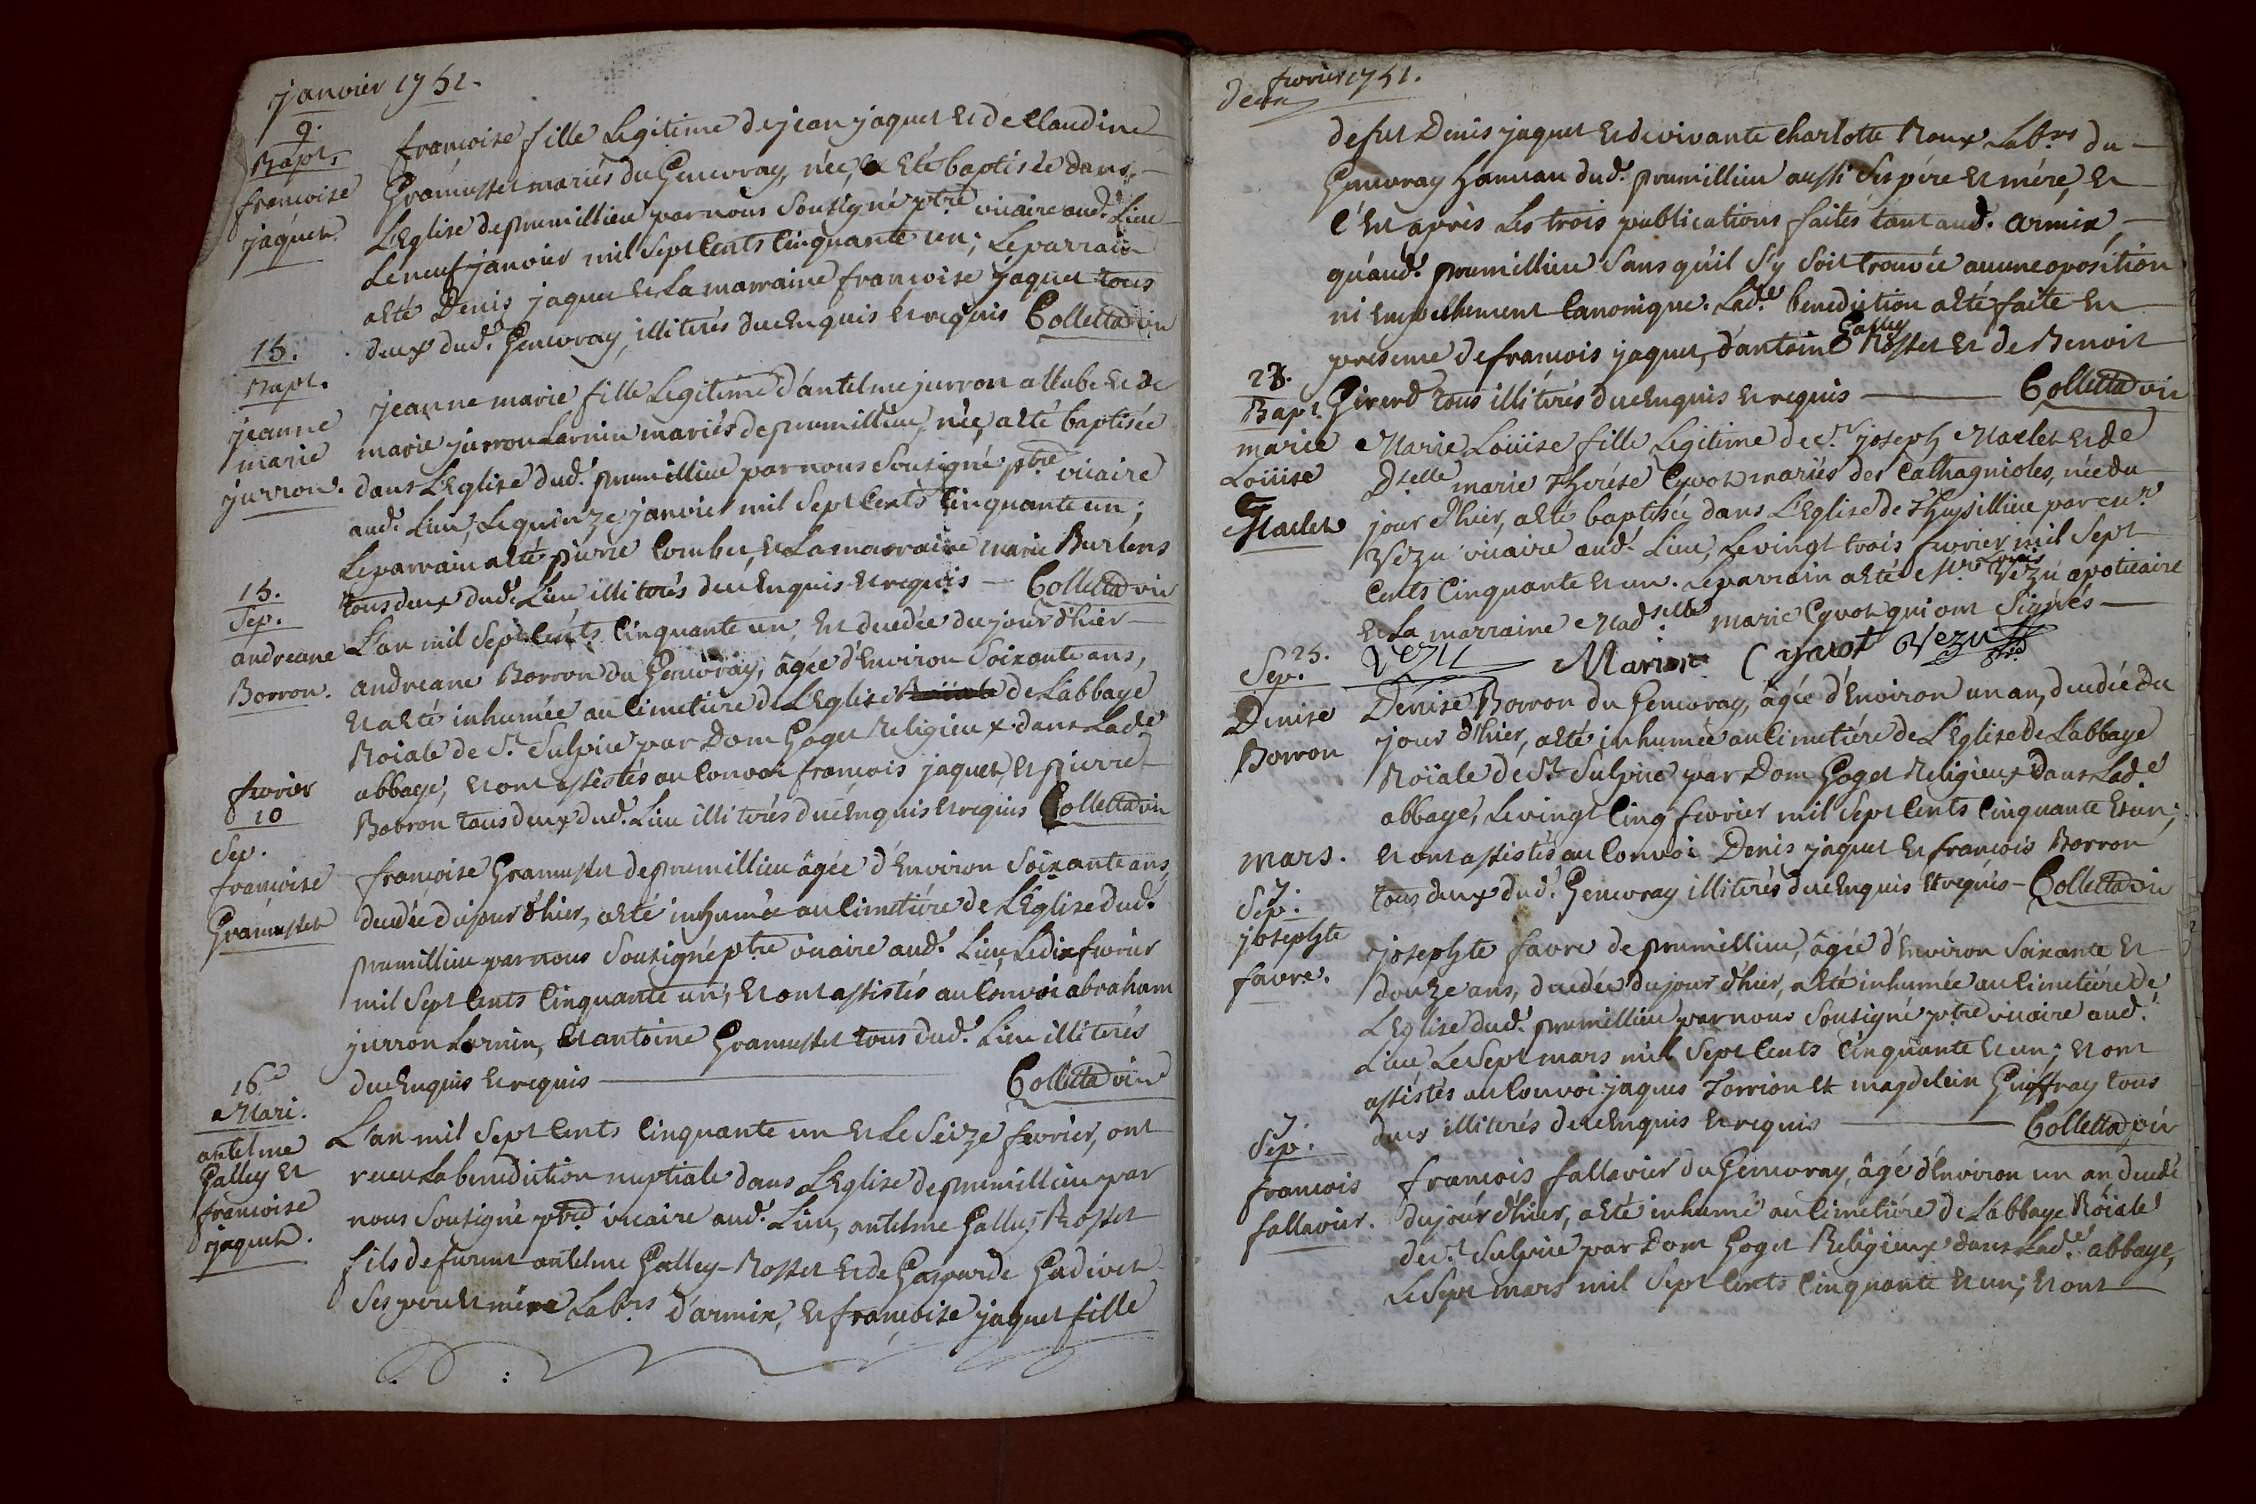 janvier 1751.
9.
Bapt.
francoise
jaquet
francoise fille Legitime de jean jaquet et de Claudine
Gramusset mariés du Genevray, née, a eté baptisée dans
L'Eglise de prumillieu par nous Soussigné ptre vicaire aud. Lieu
Le neuf janvier mil Sept Cents Cinquante un; Le parrain
a eté Denis jaquet et La marraine francoise jaquet tous
deux dud. Genevray, illiterés de ce enquis et requis Colletta vic
15.
Bapt.
jeanne
marie
jurron.
jeanne marie fille Legitime d'antelme jurron et de
marie jurron Larnin mariés de prumillieu, née, a eté baptisée
dans L'Eglise dud. prumillieu par nous Sousigné ptre vicaire
aud. Lieu, Le quinze janvier mil Sept Cents Cinquante un;
Le parrain a eté pierre Combet, et La marraine marie Burlens
tous deux dud. Lieu illiterés de ce enquis et requis — Colletta vic
15.
Sep.
andreane
Borron.
L'an mil Sept Cents Cinquante un, Est decedée du jour d'hier
andreane Borron du Genevray, âgée d'Environ Soixante ans,
et a eté inhumée au Cimetiére de L'Eglise de L'abbaye
Roiale de St Sulpice par Dom Goget Religieux dans Lade
abbaye, et ont assistés au Convoi francois jaquet, et pierre
Borron tous deux dud. Lieu illiterés de ce enquis et requis Colletta vic
fevrier
10
Sep.
francoise
Gramusset
francoise Gramusset de prumillieu âgée d'Environ Soixante ans,
decedée du jour d'hier, a eté inhumée au Cimetiére de L'Eglise dud.
prumillieu par nous Sousigné ptre vicaire aud. Lieu, Le dix fevrier
mil Sept Cents Cinquante un; et ont assistés au Convoi abraham
jurron Larnin, et antoine Gramusset tous dud. Lieu illiterés
de ce enquis et requis — Colletta vic
16e
Mari.
antelme
Galley et
francoise
jaquet.
L'an mil Sept Cents Cinquante un et Le Seize fevrier, ont
receu La benediction nuptiale dans L'Eglise de prumillieu par
nous Sousigné ptre vicaire aud. Lieu, antelme Galley-Rosset
fils de furent antelme Galley-Rosset et de Gasparde Gadivet
Ses pere et mère Labrs d'armix, et francoise jaquet fille
fevrier 1751.
deux
de fut Denis jaquet et de vivante charlotte Roux Labrs du
Genevray hameau dud. prumillieu aussi Ses pére et mére, et
c'est après Les trois publications faites tant aud. armix,
qu'aud. prumillieu Sans qu'il S'y Soit trouvée aucune oposition
ni empechement Canonique. Lade benediction a eté faite en
presence de francois jaquet, d'antoine Galley Rosset et de Benoit
Girerd tous illiterés de ce enquis et requis — Colletta vic
23.
Bapt.
marie
Loüise
Maclet
Marie Loüise fille Legitime de Sr joseph Maclet et de
Dselle marie Thérése Cyvot mariés des Cathagnioles, née du
jour d'hier, a eté baptisée dans L'Eglise de Thuysillieu par Mr
Vezu vicaire aud. Lieu, Le vingt trois fevrier mil Sept
Cents Cinquante et un. Le parrain a eté Mr Louis Vezu apoticaire
et La marraine Madselle marie Cyvot qui ont Signés —
Vezu Marion Cyvot Vezu ptre
25.
Sep.
Denise
Borron
Denise Borron du Genevray, âgée d'Environ un an, decedée du
jour d'hier, a eté inhumée au Cimetiére de L'Eglise de L'abbaye
Roïale de St Sulpice par Dom Goget Religieux dans Lade
abbaye, Le vingt Cinq fevrier mil Sept Cents Cinquante et un;
et ont assistés au Convoi Denis jaquet et francois Borron
tous deux dud. Genevray illiterés de ce enquis et requis — Colletta vic
mars.
7.
Sep.
josephte
favre.
josephte favre de prumillieu, âgée d'Environ Soixante et
douze ans, decedée du jour d'hier, a eté inhumée au Cimetiére de
L'Eglise dud. prumillieu par nous Sousigné ptre vicaire aud.
Lieu Le Sept mars mil Sept Cents Cinquante et un; et ont
assistés au Convoi jaques Torrion et magdelein Guiffray tous
deux illiterés de ce enquis et requis — Colletta vic
7.
Sep.
francois
fallavier.
francois fallavier du Genevray, âgé d'Environ un an, decedé
du jour d'hier, a eté inhumé au Cimetiére de L'abbaye Roïale
de St Sulpice par Dom Goget Religieux dans Lade abbaye,
Le Sept mars mil Sept Cents Cinquante et un; et ont